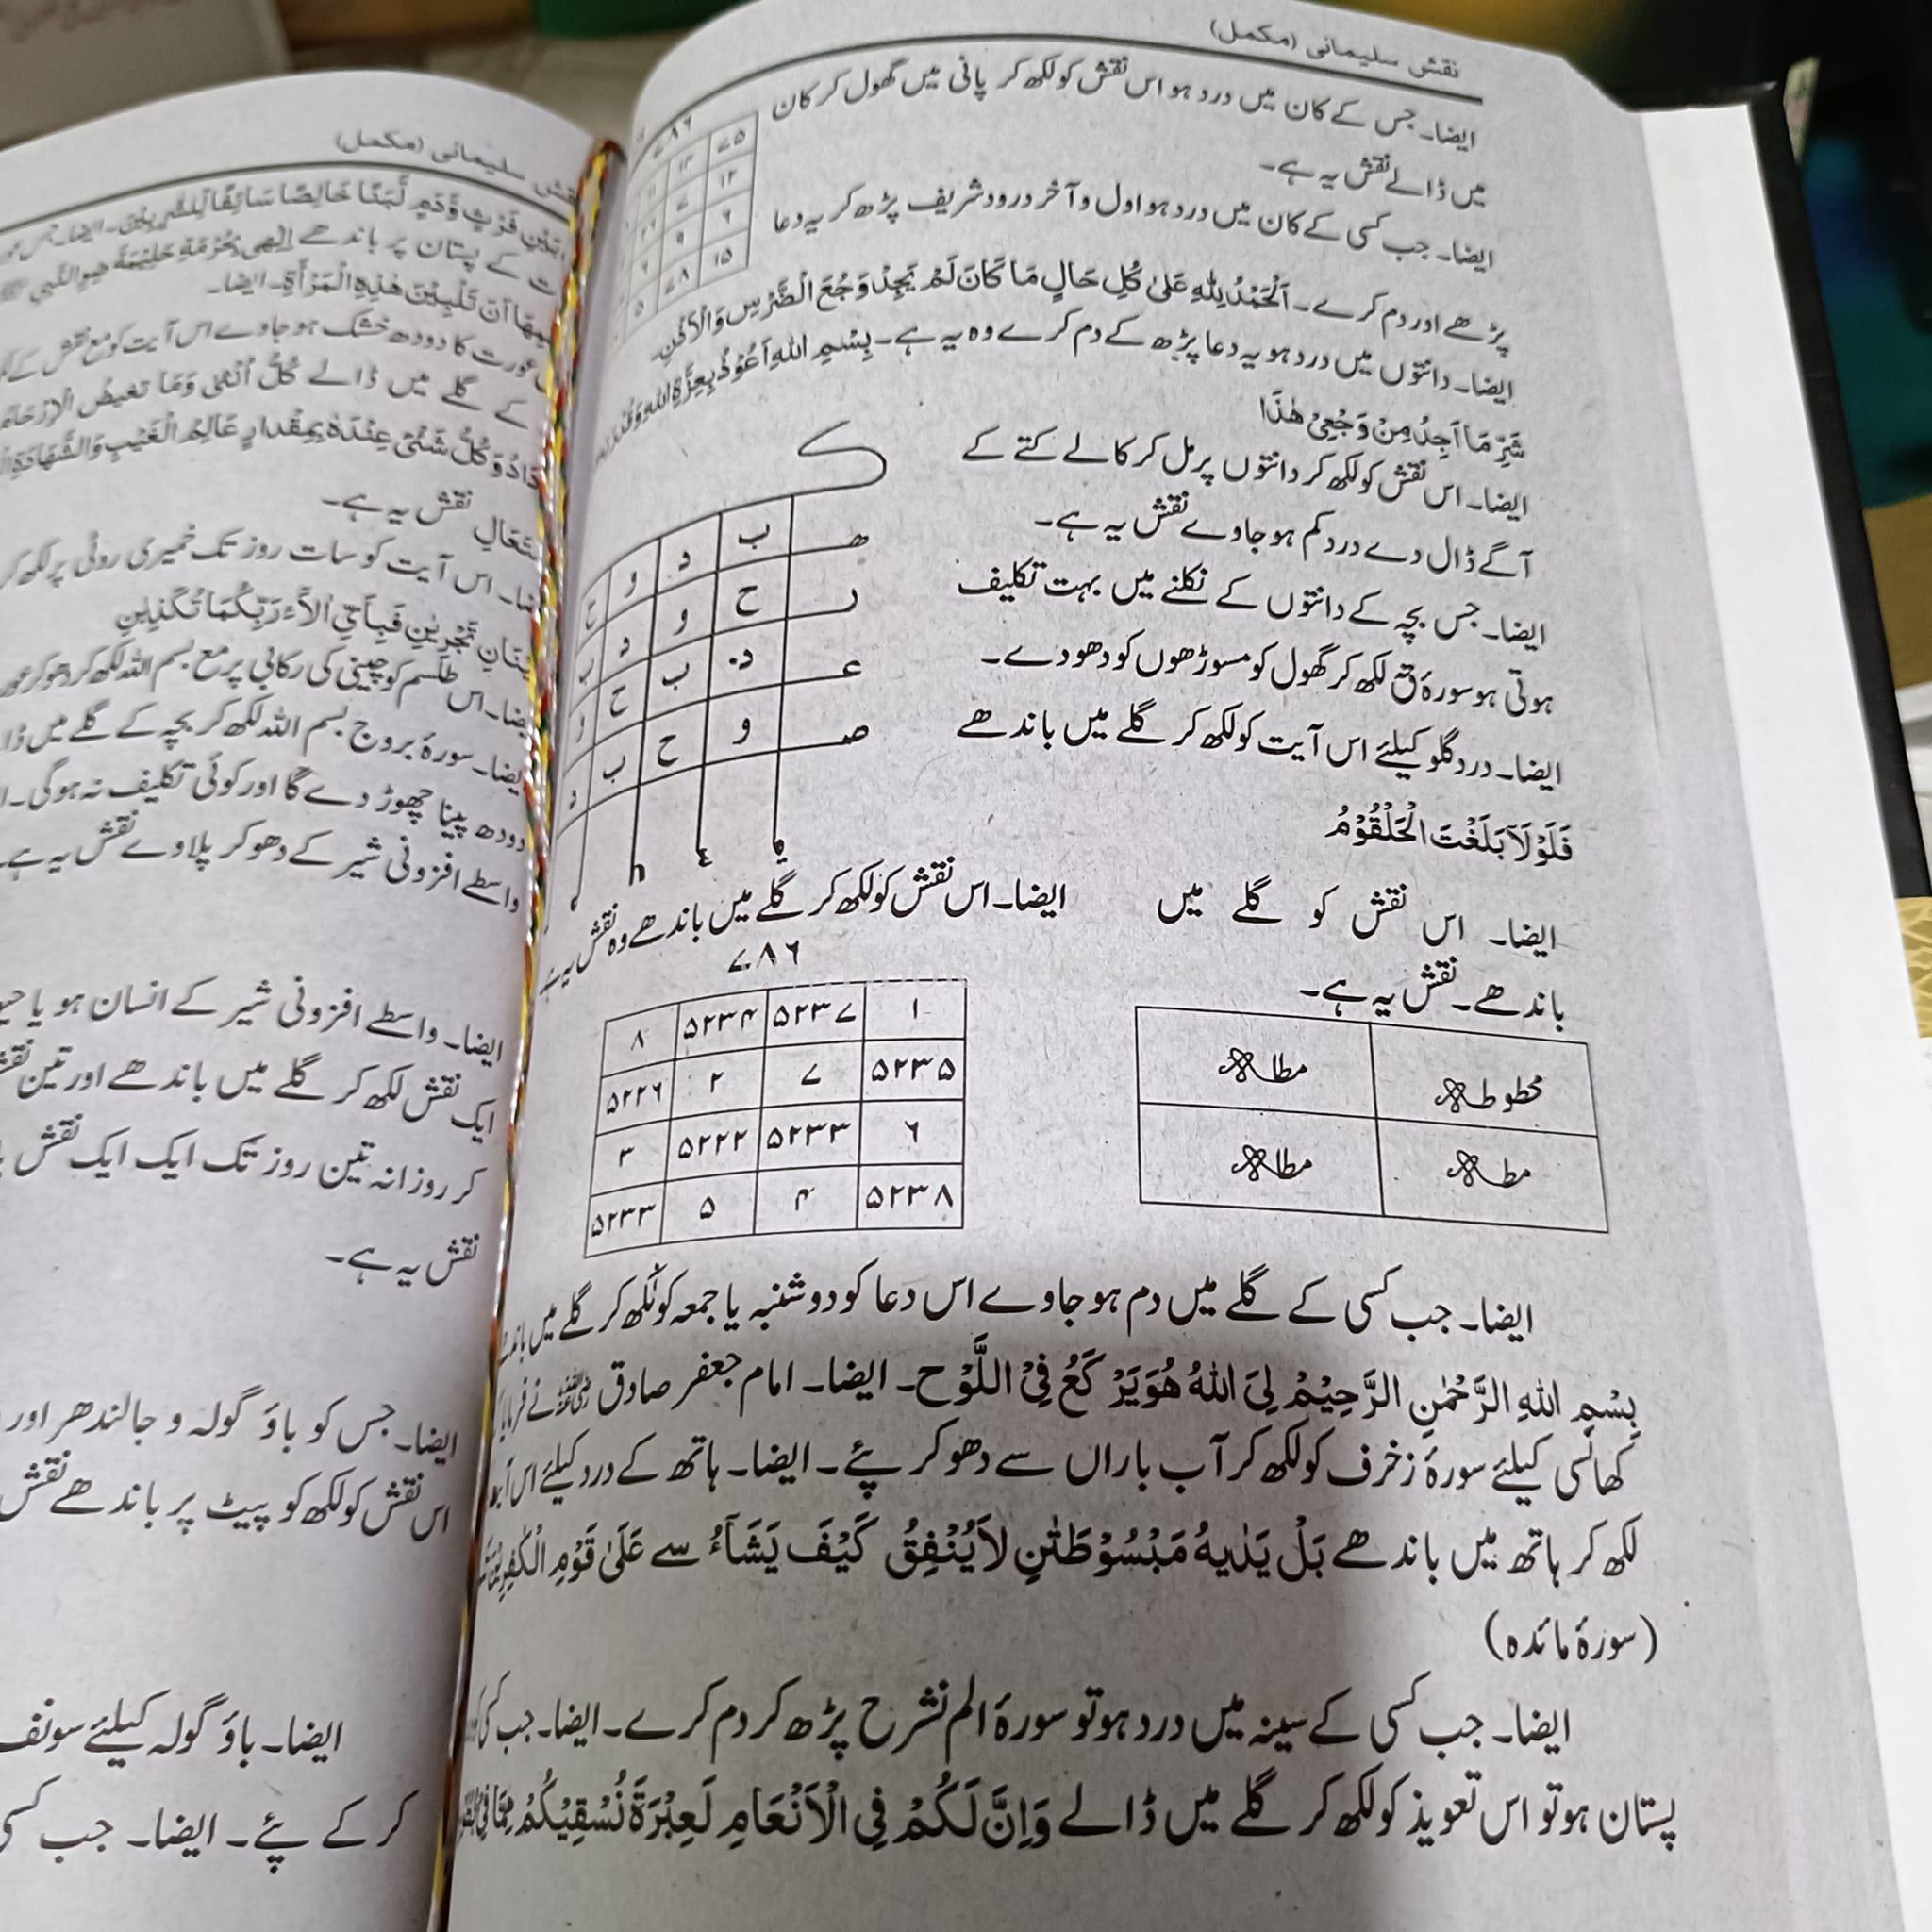 نقش سلیمانی (مکمل)
ایضا۔ جس کے کان میں درد ہو اس نقش کو لکھ کر پانی میں گھول کر کان
میں ڈالے نقش یہ ہے۔
ایضا۔ جب کسی کے کان میں درد ہو اول و آخر درود شریف پڑھ کر یہ دعا
پڑھے اور دم کرے۔ اَلْحَمْدُ لِلّٰهِ عَلىٰ كُلِّ حَالٍ مَا كَانَ لَمْ يَجِدْ وَجُعَ الْضَّرْسِ وَالْاُذُنِ۔
ایضا۔ دانتوں میں درد ہو یہ دعا پڑھ کے دم کرے وہ یہ ہے۔ بِسْمِ اللهِ اَعُوْذُ بِعِزَّةِ اللهِ
شَرِّ مَا اَجِدُ مِنْ وَجْعِیْ هٰذَا
ایضا۔ اس نقش کو لکھ کر دانتوں پر مل کر کالے کتے کے
آگے ڈال دے درد کم ہو جاوے نقش یہ ہے۔
ھ ب د و ح
ر ح و د ب
ع د ب ح و
ص و ح ب د
ایضا۔ جس بچہ کے دانتوں کے نکلنے میں بہت تکلیف
ہوتی ہو سورۂ لکھ کر گھول کو مسوڑھوں کو دھو دے۔
ایضا۔ درد گلو کیلئے اس آیت کو لکھ کر گلے میں باندھے
فَلَوْلَاَ بَلَغْتَ الْحَلْقُوْمُ
ایضا۔ اس نقش کو گلے میں
باندھے۔ نقش یہ ہے۔
ایضا۔ اس نقش کو لکھ کر گلے میں باندھے وہ نقش یہ ہے
۷۸۶
۱ ۵۲۳۷ ۵۲۳۴ ۸
۵۲۳۵ ۷ ۲ ۵۲۲۶
۶ ۵۲۳۳ ۵۲۲۲ ۳
۵۲۳۸ ۴ ۵ ۵۲۳۳
ایضا۔ جب کسی کے گلے میں دم ہو جاوے اس دعا کو دوشنبہ یا جمعہ کو لکھ کر گلے میں
بِسْمِ اللهِ الرَّحْمٰنِ الرَّحِيْمْ لِىَ اللهُ هُوَ يَرْ كَعُ فِیْ اللَّوْح۔ ایضا۔ امام جعفر صادق نے فرمایا
کھانسی کیلئے سورۂ زخرف کو لکھ کر آب باراں سے دھو کر پئے۔ ایضا۔ ہاتھ کے درد کیلئے اس
لکھ کر ہاتھ میں باندھے بَلْ يَدٰيهُ مَبْسُوْطَتٰنِ لَا يُنْفِقُ كَيْفَ يَشَآءُ سے عَلَىٰ قَوْمِ الْكٰفِرِيْنَ
(سورۂ مائدہ)
ایضا۔ جب کسی کے سینہ میں درد ہو تو سورۂ الم نشرح پڑھ کر دم کرے۔ ایضا۔ جب کسی
پستان ہو تو اس تعویذ کو لکھ کر گلے میں ڈالے وَاِنَّ لَكُمْ فِی الْاَنْعَامِ لَعِبْرَةً نُسْقِيْكُمْ مِمَّا فِی
نقش سلیمانی (مکمل)
فَرْثٍ وَّدَمٍ لَّبَنًا خَالِصًا سَائِغًا لِلشّٰرِبِيْنَ۔ ایضا۔
کے پستان پر باندھے اِلٰهِی بِحُرْمَةِ حَلِيْمَةَ
هٰذِهِ الْمَرْأَةِ۔ ایضا۔
عورت کا دودھ خشک ہو جاوے اس آیت کو مع نقش کے
کے گلے میں ڈالے كُلُّ اُنْثٰى وَمَا تَغِيْضُ الْاَرْحَامُ
وَكُلُّ شَىْءٍ عِنْدَهٗ بِمِقْدَارٍ عَالِمُ الْغَيْبِ وَالشَّهَادَةِ
نقش یہ ہے۔
اس آیت کو سات روز تک خمیری روٹی پر لکھ کر
تَجْرِيٰنِ فَبِاَىِّ اٰلَآءِ رَبِّكُمَا تُكَذِّبٰنِ
اس طلسم کو چینی کی رکابی پر مع بسم اللہ لکھ کر دھو کر
ایضا۔ سورۂ بروج بسم اللہ لکھ کر بچہ کے گلے میں
دودھ پینا چھوڑ دے گا اور کوئی تکلیف نہ ہوگی۔
واسطے افزونی شیر کے دھو کر پلاوے نقش یہ ہے۔
ایضا۔ واسطے افزونی شیر کے انسان ہو یا
ایک نقش لکھ کر گلے میں باندھے اور تین
کر روزانہ تین روز تک ایک ایک نقش
نقش یہ ہے۔
ایضا۔ جس کو باؤ گولہ و جالندھر اور
اس نقش کو لکھ کو پیٹ پر باندھے نقش
ایضا۔ باؤ گولہ کیلئے سونف
کر کے پئے۔ ایضا۔ جب کسی